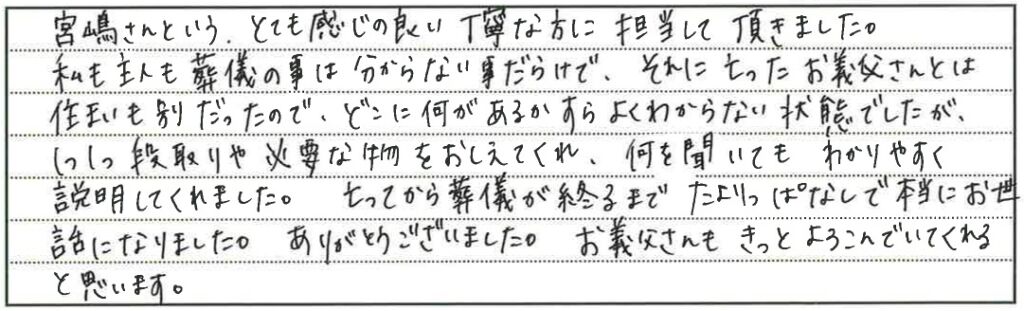 宮嶋さんという、とても感じの良い丁寧な方に担当して頂きました。
私も主人も葬儀の事は分からない事だらけで、それに亡ったお義父さんとは
住まいも別だったので、どこに何があるかすらよくわからない状態でしたが、
1つ1つ段取りや必要な物をおしえてくれ、何を聞いてもわかりやすく
説明してくれました。亡ってから葬儀が終るまでたよりっぱなしで本当にお世
話になりました。ありがとうございました。お義父さんもきっとよろこんでいてくれる
と思います。